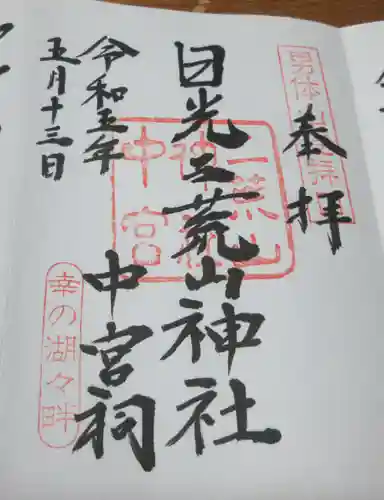 奉拝
日光二荒山神社
中宮祠
令和五年
五月十三日
二荒山
神社
中宮
幸の湖々畔